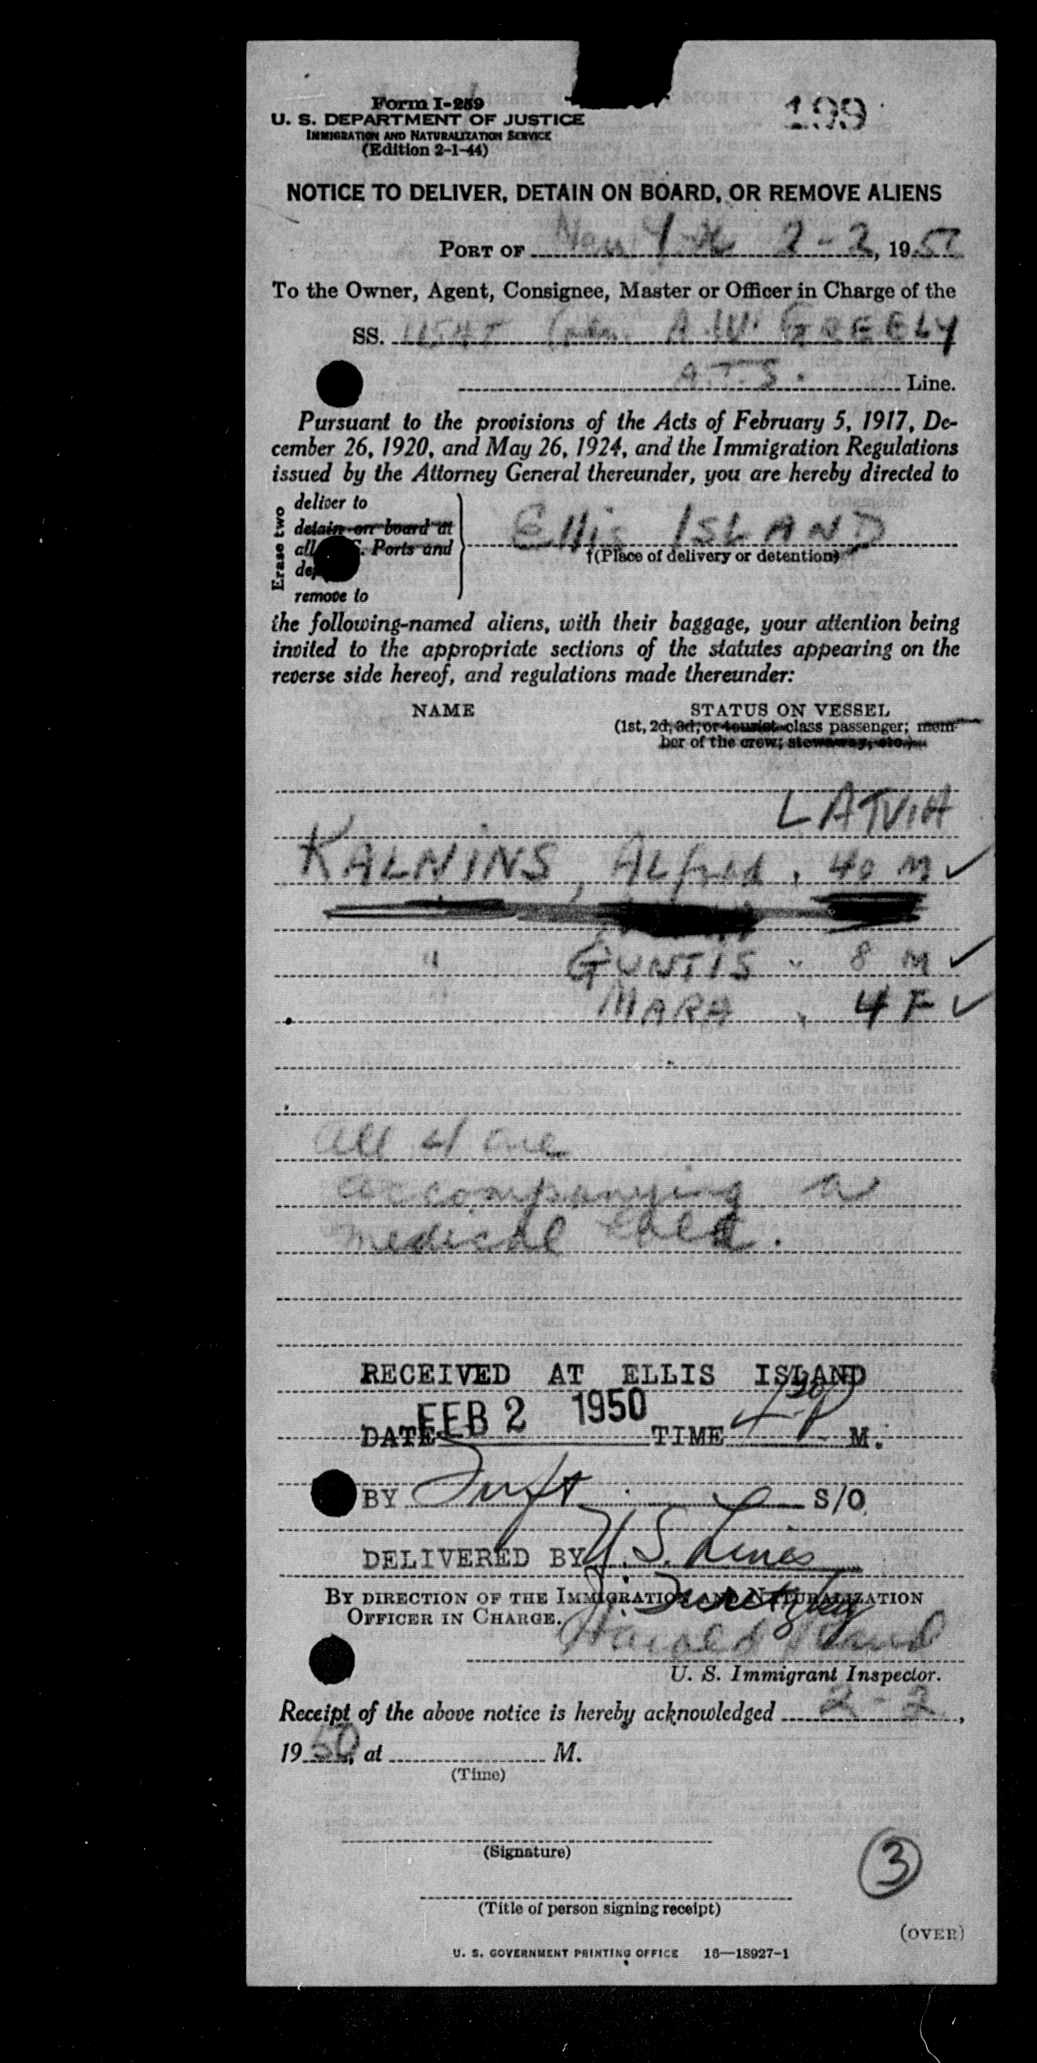 Form I-259
199
U. S. DEPARTMENT OF JUSTICE
IMMIGRATION AND NATURALIZATION SERVICE
(Edition 2-1-44)
NOTICE TO DELIVER, DETAIN ON BOARD, OR REMOVE ALIENS
PORT OF New York 2-2, 1950
To the Owner, Agent, Consignee, Master or Officer in Charge of the
SS. USAT Gen. A.W. GREELY
A.T.S. Line.
Pursuant to the provisions of the Acts of February 5, 1917, De-
cember 26, 1920, and May 26, 1924, and the Immigration Regulations
issued by the Attorney General thereunder, you are hereby directed to
Erase two
deliver to
detain on board at
all Ports and
remove to
Ellis ISLAND
†(Place of delivery or detention)
the following-named aliens, with their baggage, your attention being
invited to the appropriate sections of the statutes appearing on the
reverse side hereof, and regulations made thereunder:
NAME STATUS ON VESSEL
(1st, 2d, 3d, or tourist-class passenger; mem-
ber of the crew; stowaway, etc.)
LATVIA
KALNINS, Alfred, 40 M ✓
" GUNTIS " 8 M ✓
MARA 4 F ✓
All 4 are
accompanying a
medical
RECEIVED AT ELLIS ISLAND
DATE FEB 2 1950 TIME 4 30 P M.
BY S/O
DELIVERED BY U.S. Lines
BY DIRECTION OF THE IMMIGRATION AND NATURALIZATION
OFFICER IN CHARGE.
Harold
U. S. Immigrant Inspector.
Receipt of the above notice is hereby acknowledged 2-2,
19 50, at M.
(Time)
(Signature)
3
(Title of person signing receipt)
(OVER)
U. S. GOVERNMENT PRINTING OFFICE 16—18927-1